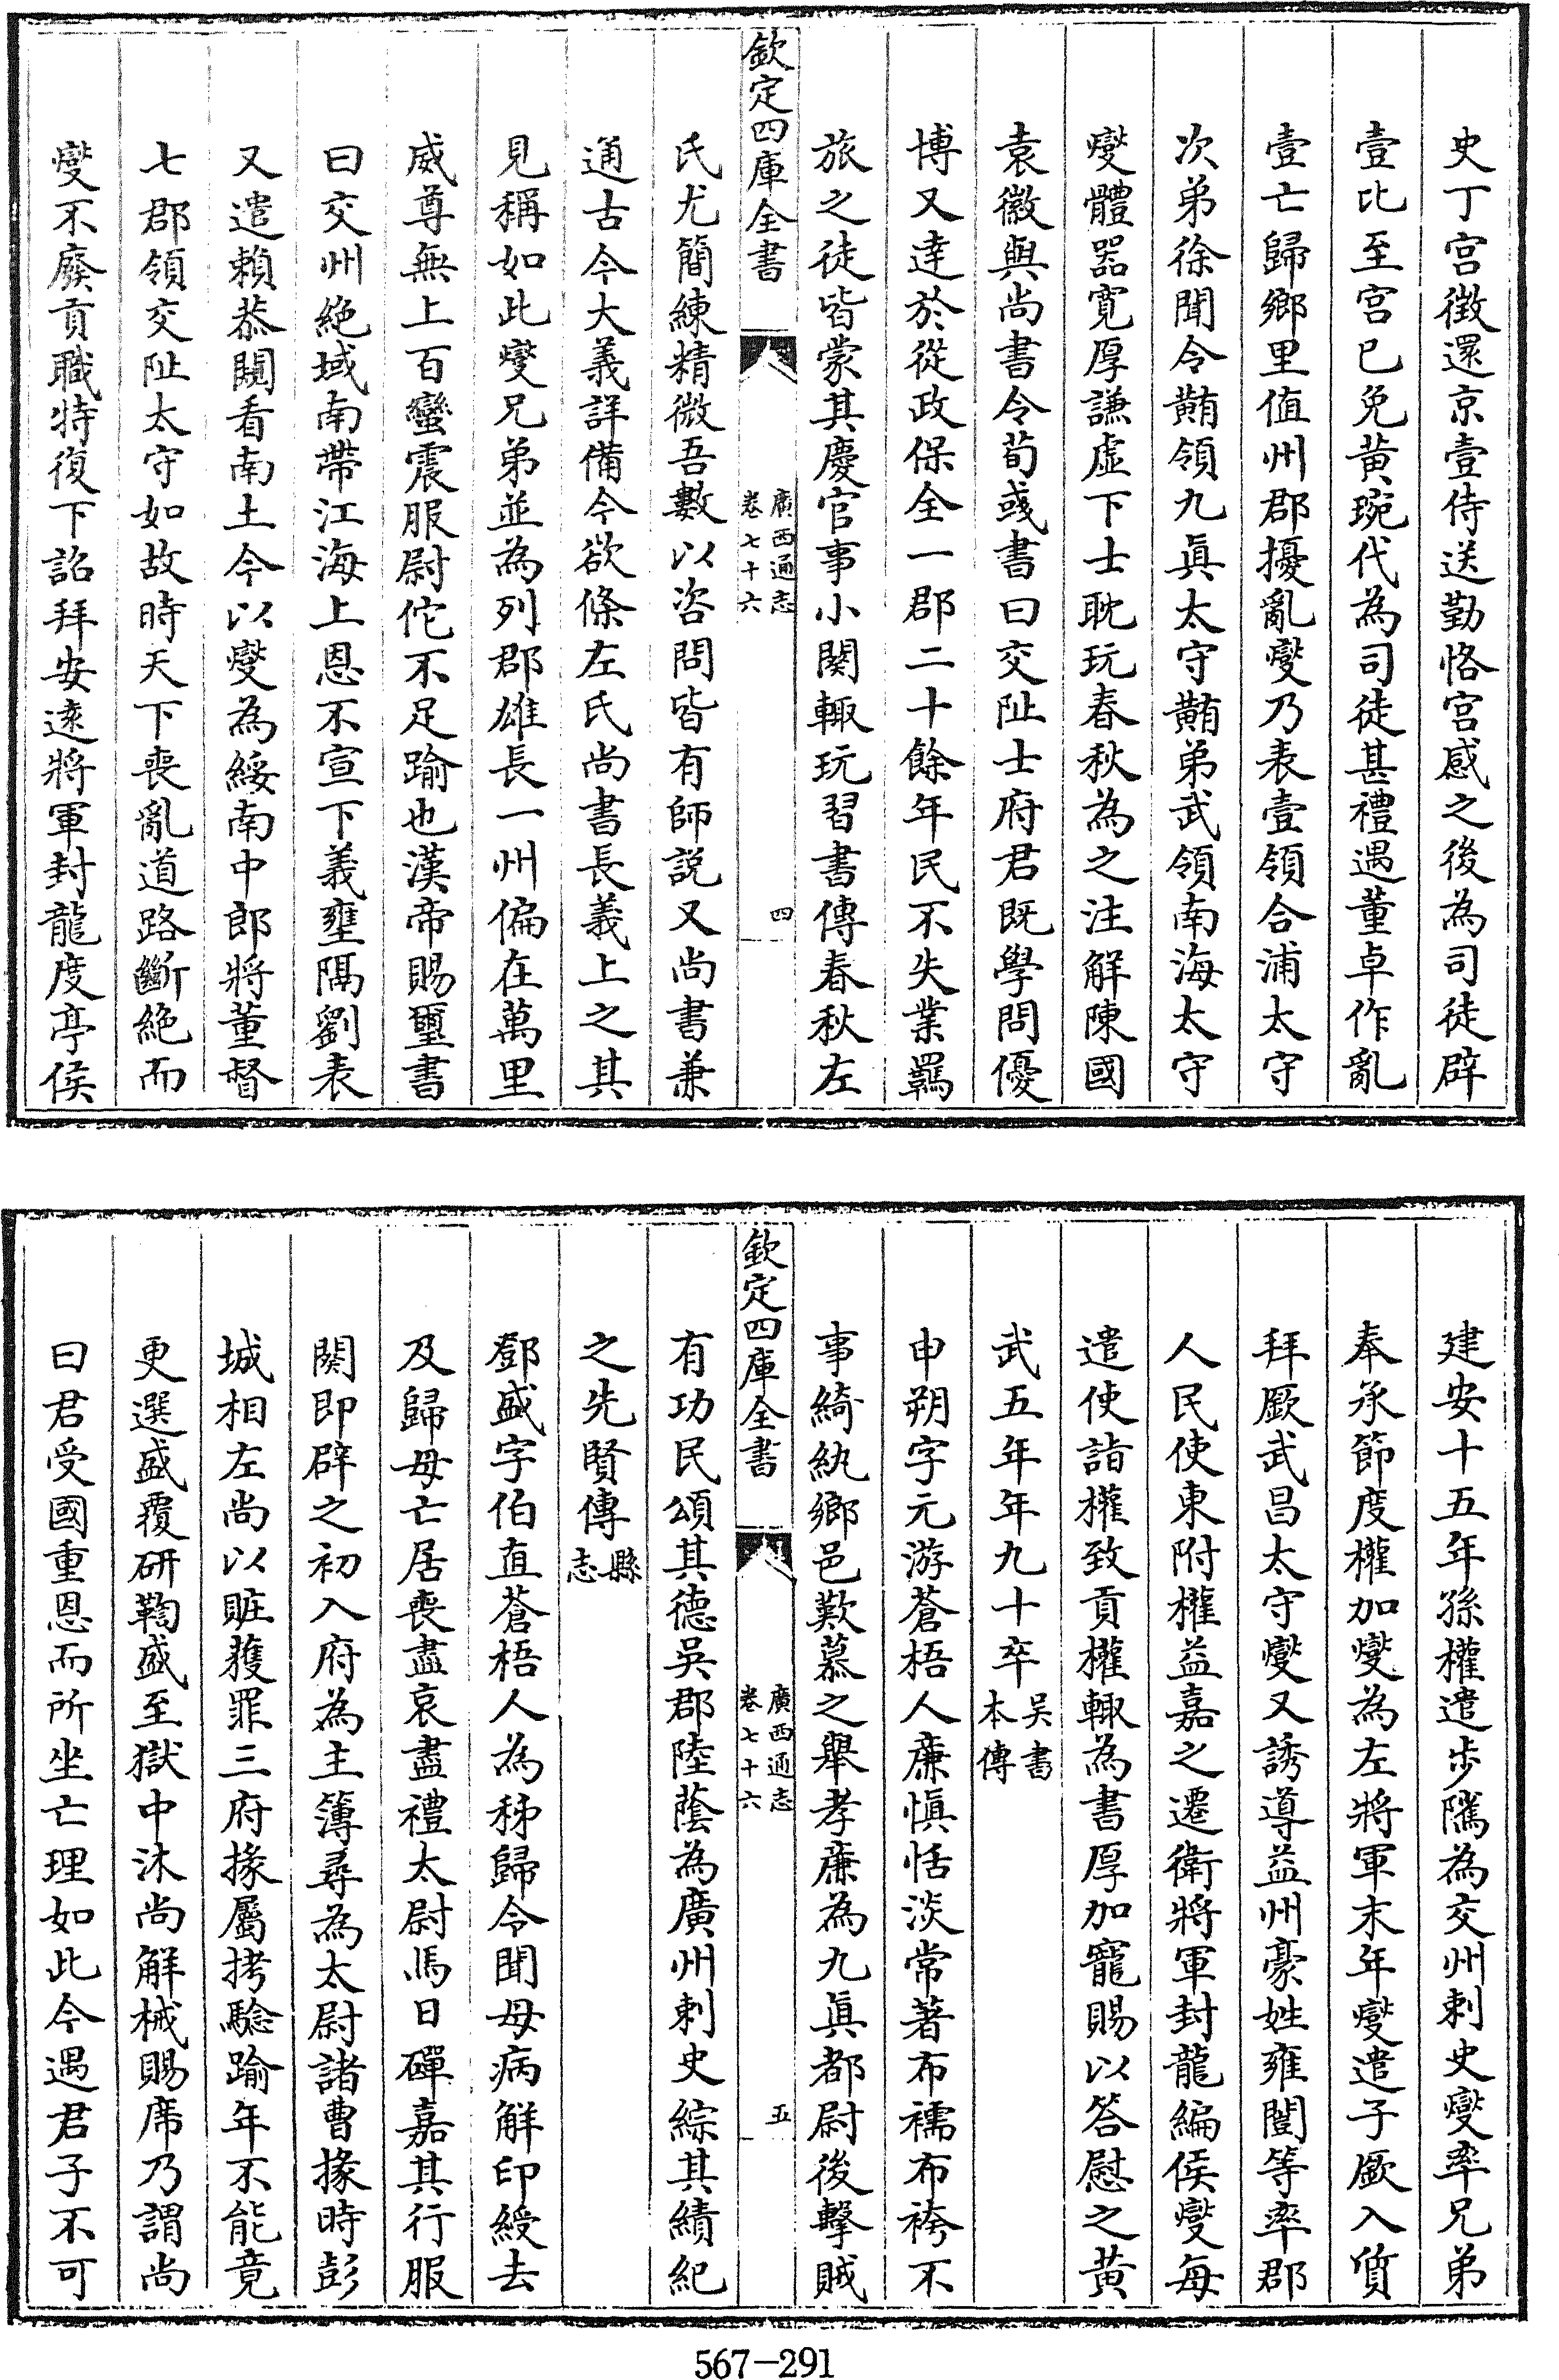 史丁宫徴還京壹侍送勤恪宫感之後為司徒辟
壹比至宫已免黄琬代為司徒甚禮遇董卓作亂
壹亡歸鄉里值州郡擾亂燮乃表壹領合浦太守
次弟徐聞令䵋領九真太守䵋弟武領南海太守
燮體器寛厚謙虚下士耽玩春秋為之注解陳國
袁徽與尚書令荀彧書曰交阯士府君既學問優
博又達於從政保全一郡二十餘年民不失業羈
旅之徒皆蒙其慶官事小闋輒玩習書傳春秋左
欽定四庫全書
廣西通志
卷七十六
四
氏尤簡練精微吾數以咨問皆有師説又尚書兼
通古今大義詳備今欲條左氏尚書長義上之其
見稱如此燮兄弟並為列郡雄長一州偏在萬里
威尊無上百蠻震服尉佗不足踰也漢帝賜璽書
曰交州絶域南帶江海上恩不宣下義壅隔劉表
又遣賴恭闚看南土今以燮為綏南中郎將董督
七郡領交阯太守如故時天下喪亂道路斷絶而
燮不廢貢職特復下詔拜安逺將軍封龍度亭侯
建安十五年孫權遣步隲為交州刺史燮率兄弟
奉承節度權加燮為左將軍末年燮遣子廞入質
拜厥武昌太守燮又誘導益州豪姓雍闓等率郡
人民使東附權益嘉之遷衛將軍封龍編侯燮每
遣使詣權致貢權輒為書厚加寵賜以答慰之黄
武五年年九十卒吴書本傳
申朔字元游蒼梧人廉慎恬淡常著布襦布袴不
事綺紈鄉邑歎慕之舉孝廉為九真都尉後擊賊
欽定四庫全書
廣西通志
卷七十六
五
有功民頌其德吳郡陸蔭為廣州刺史綜其績紀
之先賢傳縣志
鄧盛字伯直蒼梧人為秭歸令聞母病解印綬去
及歸母亡居喪盡哀盡禮太尉馬日磾嘉其行服
闋即辟之初入府為主簿尋為太尉諸曹掾時彭
城相左尚以贓獲罪三府掾屬拷驗踰年不能竟
更選盛覆研鞫盛至獄中沐尚解械賜席乃謂尚
曰君受國重恩而所坐亡理如此今遇君子不可
567-291